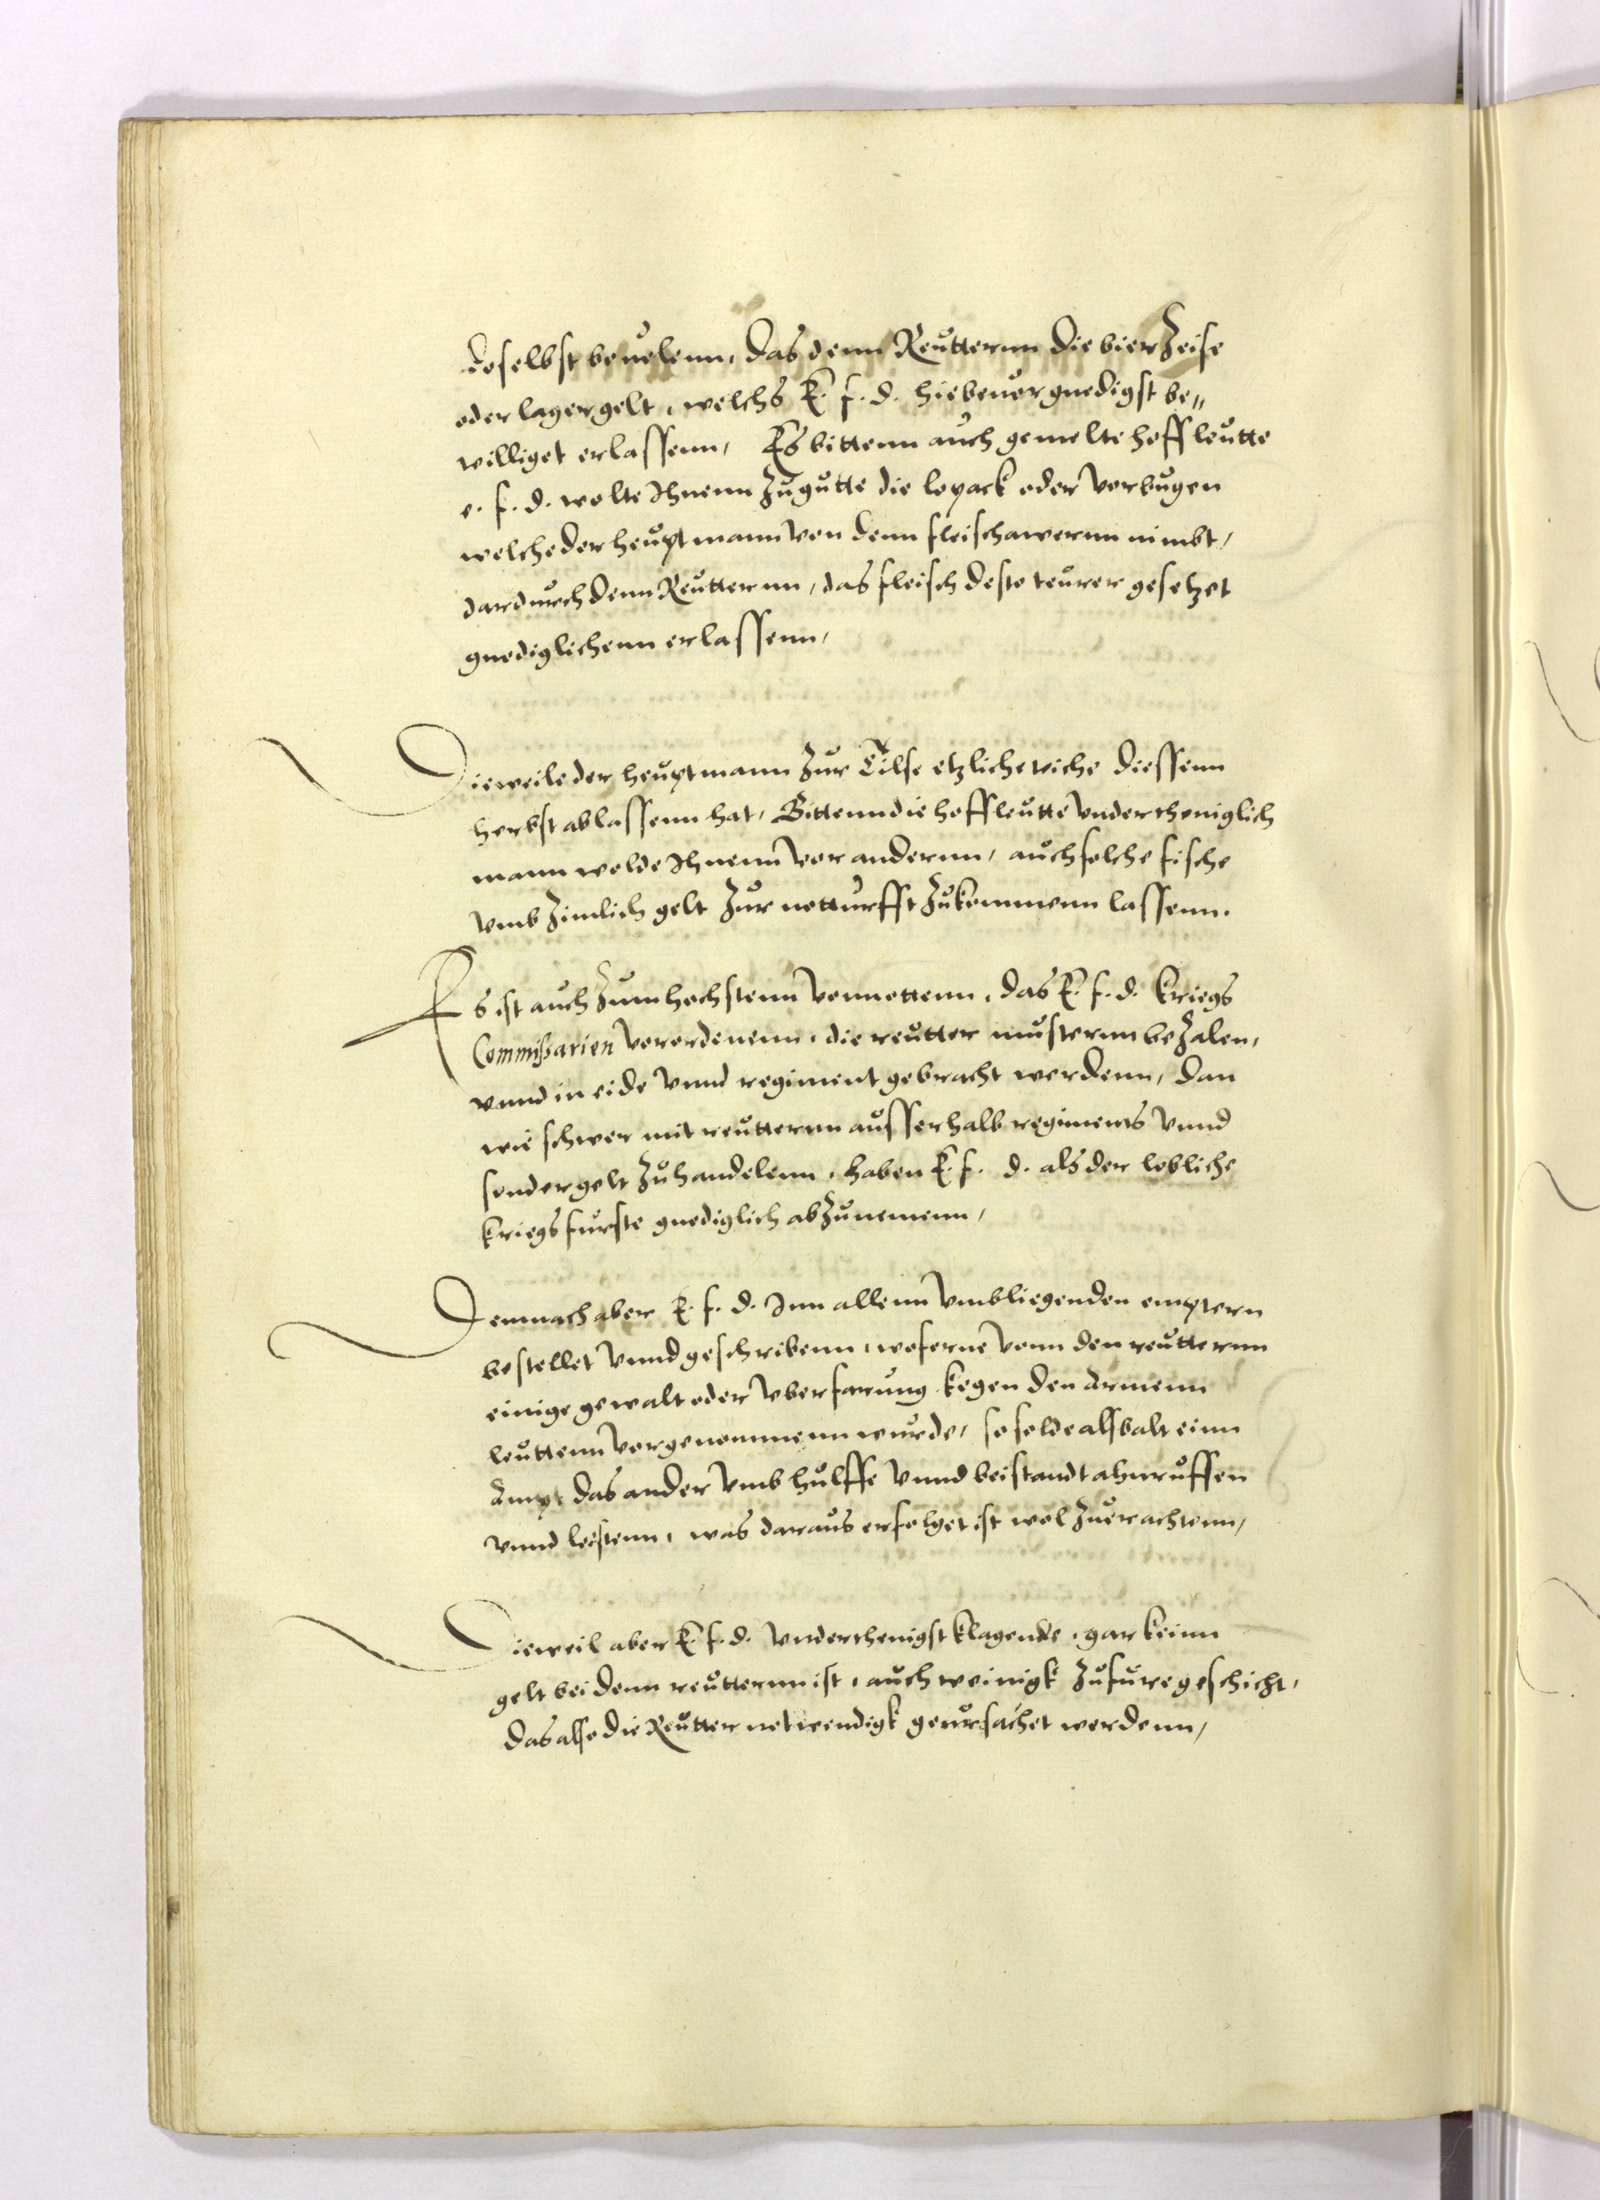 doselbst beuelenn, das denn Reutternn die bier Zeise
oder lagergelt, welchs E. f. d. hiebeuor gnedigst be„
williget erlassenn, Es bittenn auch gemelte hoffleutte
e. f. d. wolte Ihnenn Zugutte die lopack oder vorbugen
welche der heuptmann von denn fleischawernn nimbt,
dardurch denn Reutternn, das fleisch deste teurer gesetzet
gnediglichenn erlassenn,
Dieweile der heuptmann Zur Tilse etzliche teiche diessenn
herbst ablassenn hat, Bittenn die hoffleutte vndertheniglich
mann wolde Ihnenn vor andernn, auch solche fische
vmb Zimlich gelt Zur notturfft Zukommenn lassenn.
Es ist auch Zum hochstenn vonnottenn, das E. f. d. kriegs
Commißarien verordenenn, die reutter musternn beZalen,
vnnd in eide vnnd regiment gebracht werdenn, dan
wie schwer mit reutternn ausserhalb regiments vnnd
sonder gelt Zuhandelenn, haben E. f. d. als der lobliche
kriegsfurste gnediglich abZunemenn,
Demnach aber E. f. d. Inn allenn vmbliegenden emptern
bestellet vnnd geschribenn, woferne vonn den reutternn
einige gewalt oder vberfarung kegen den Armenn
leuttenn vorgenommenn wurde, so solde alsbalt einn
Ampt das ander vmb hulffe vnnd beistandt ahnruffen
vnnd leistenn, was daraus erfolget ist wol Zuerachtenn,
Dieweil aber E. f. d. vnderthenigst klagende, gar keinn
gelt bei denn reutternn ist, auch weinigk Zufure geschicht,
das also die Reutter notwendigk geursachet werdenn,